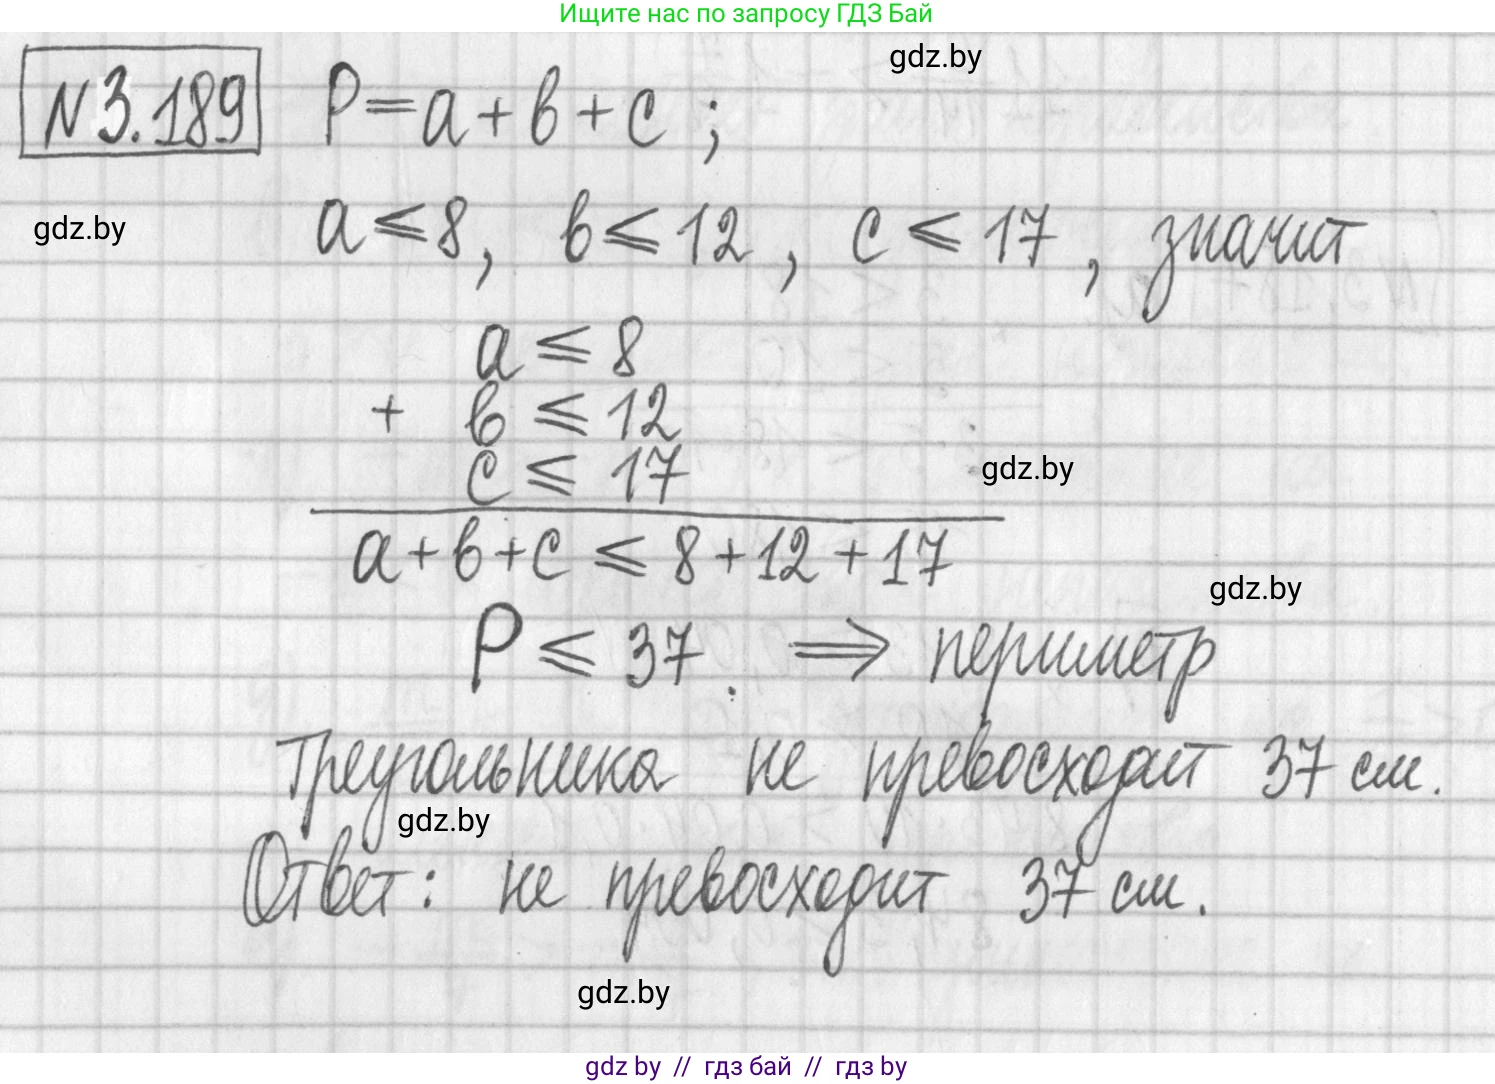 Ищите нас по запросу ГДЗ Бай
gdz.by
N 3.189 P = a + b + c ;
gdz.by
a ⩽ 8, b ⩽ 12, c ⩽ 17, значит
a ⩽ 8
+ b ⩽ 12
c ⩽ 17
gdz.by
a + b + c ⩽ 8 + 12 + 17
gdz.by
P ⩽ 37. ⇒ периметр
треугольника не превосходит 37 см.
gdz.by
Ответ: не превосходит 37 см.
gdz.by
gdz by // гдз бай // гдз by